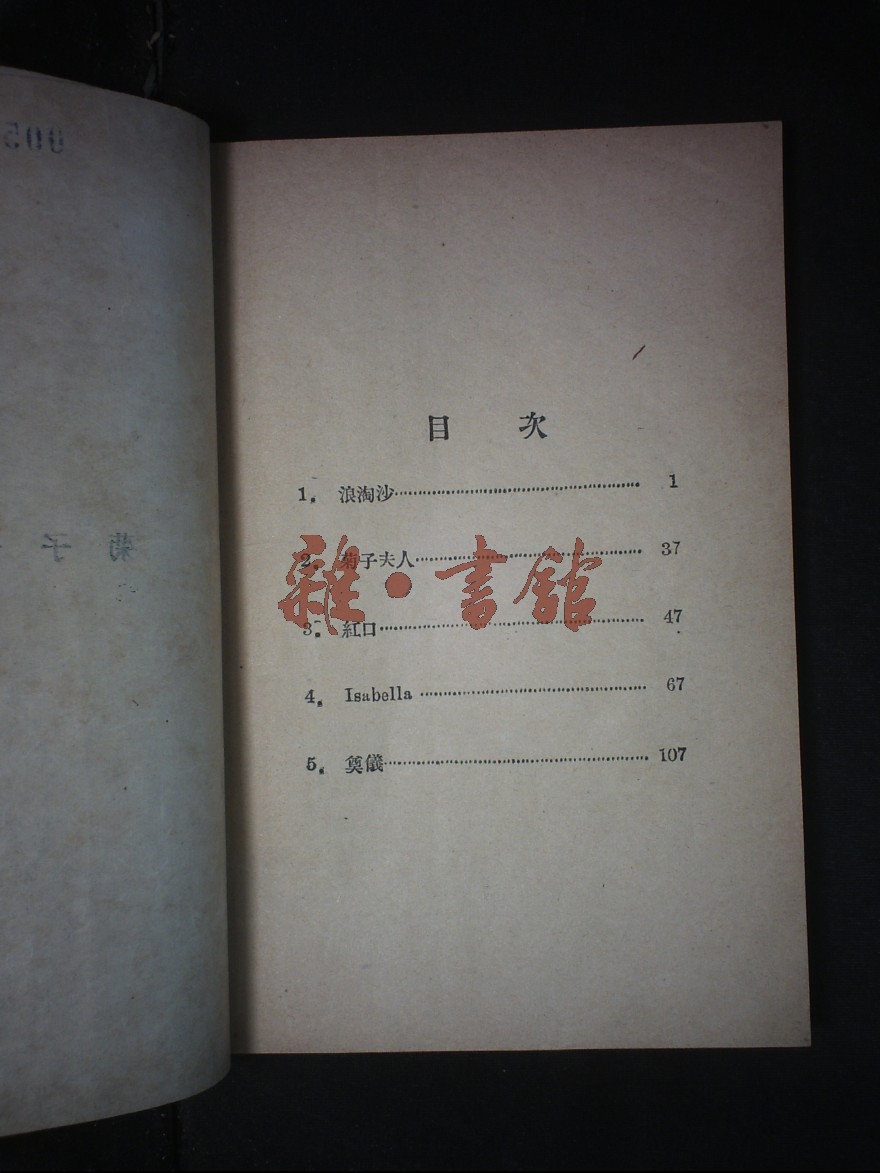 目 次
1. 浪淘沙 1
2. 菊子夫人 37
3. 紅口 47
4. Isabella 67
5. 奠儀 107
雜·書館
菊 子
005